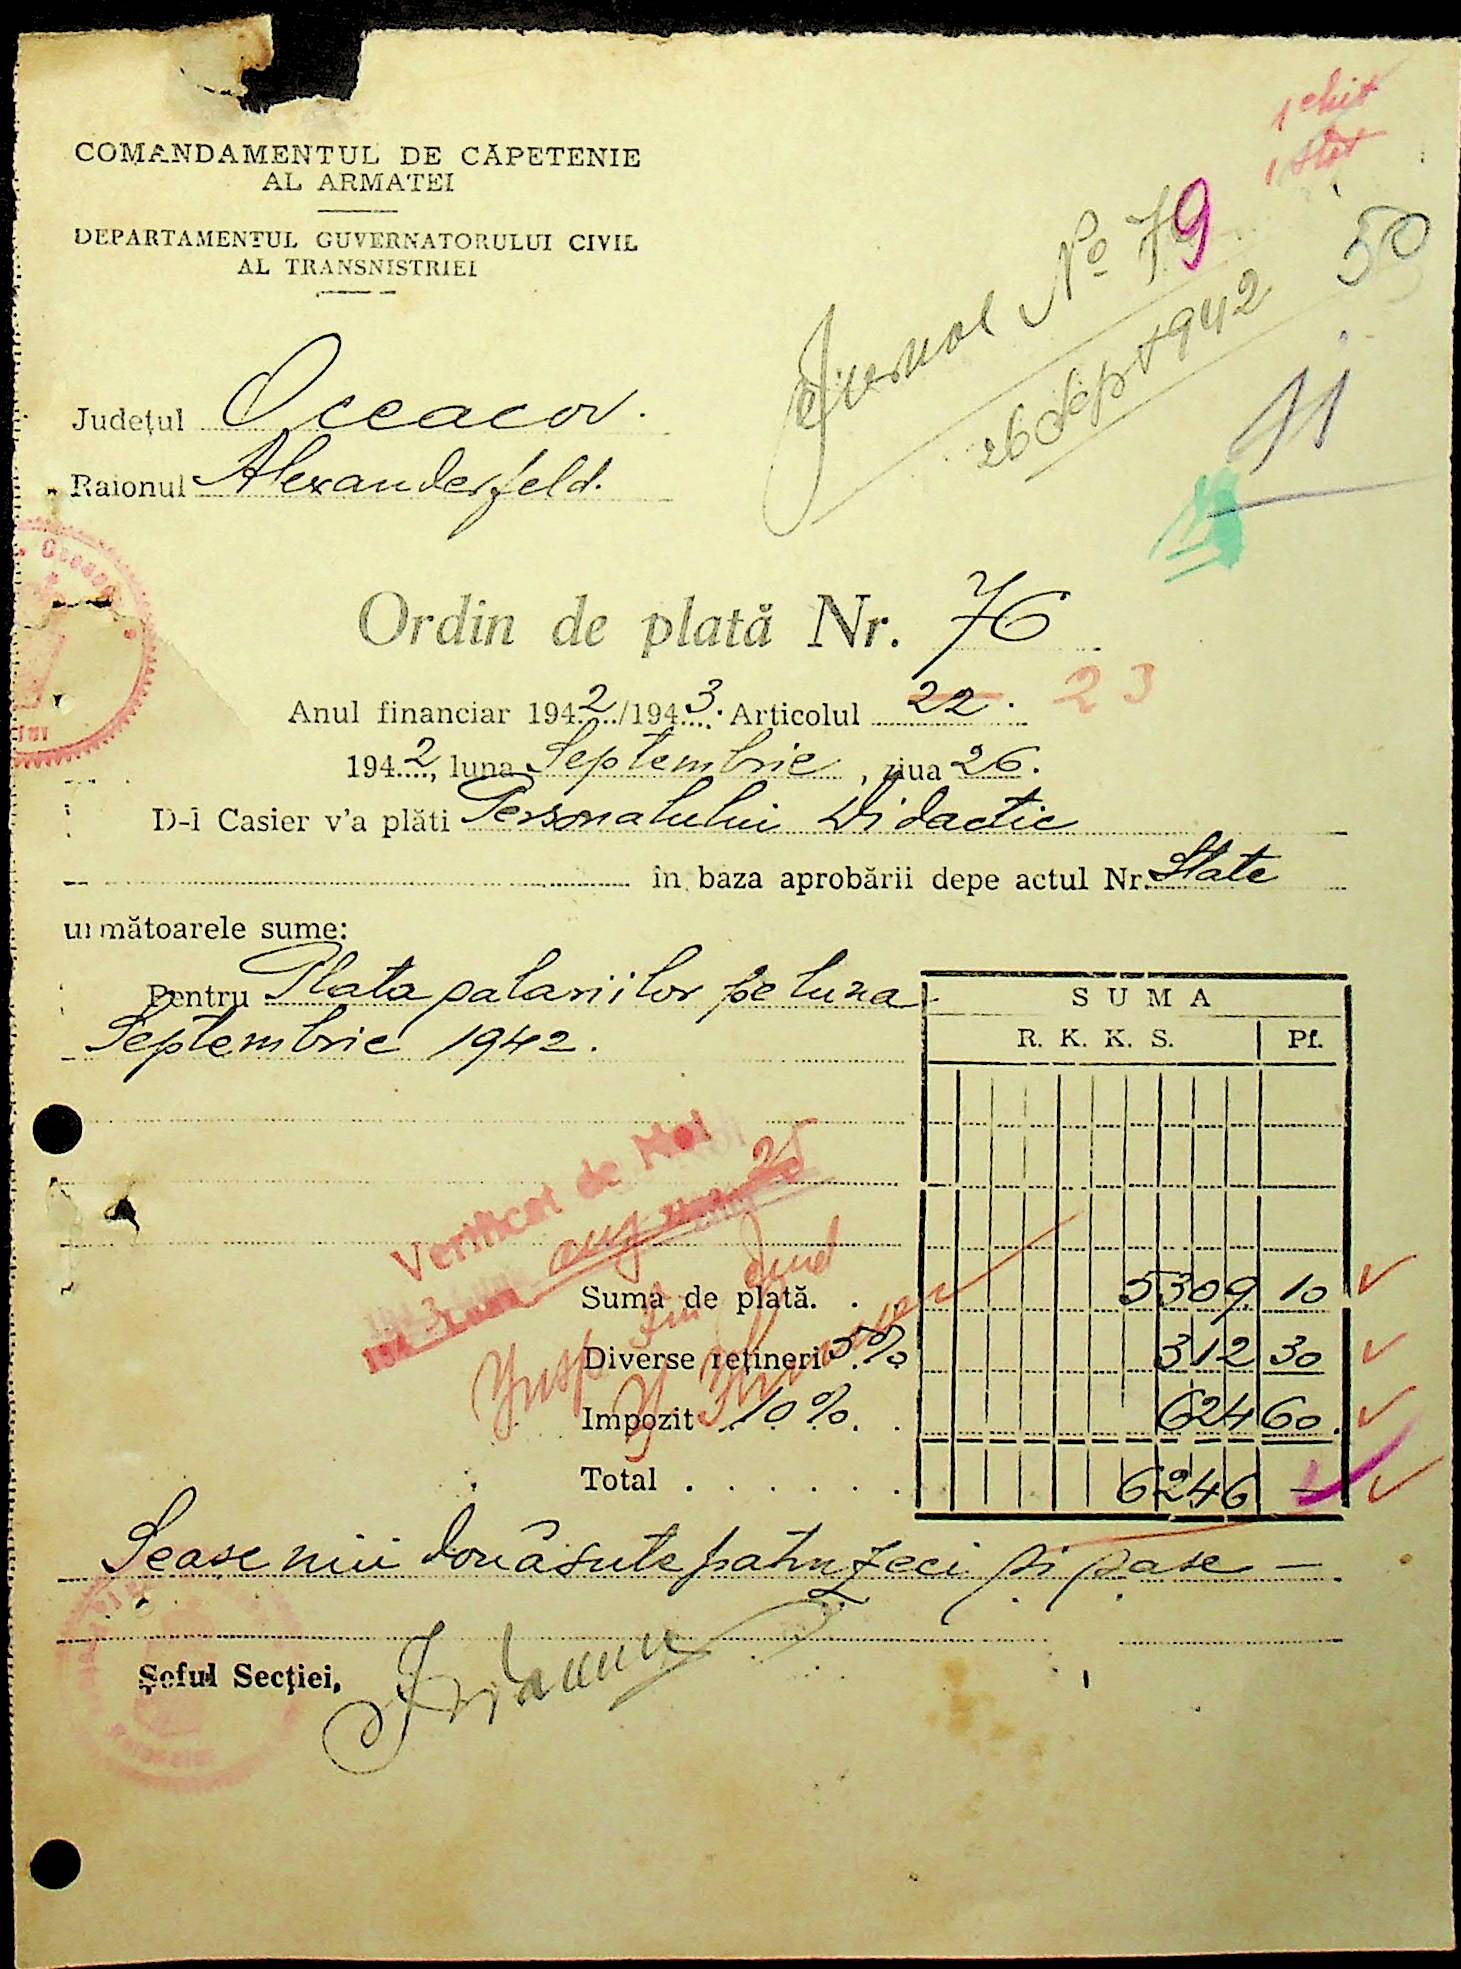 1 chit
1 stat
COMANDAMENTUL DE CAPETENIE
AL ARMATEI
DEPARTAMENTUL GUVERNATORULUI CIVIL
AL TRANSNISTRIEI
Jurnal No 79
26 Sept 1942
50
11
Județul Oceacov.
Raionul Alexanderfeld.
Ordin de plată Nr. 76
Anul financiar 1942/1943. Articolul 22. 23
1942, luna Septembrie, ziua 26.
D-l Casier v'a plăti Personalului Didactic
în baza aprobării depe actul Nr. State
următoarele sume:
Pentru Plata salariilor pe luna
Septembrie 1942.
SUMA
R. K. K. S. Pf.
Verificat de Noi
194 3 Luna aug 25
Insp
Suma de plată. . 5309 10
Diverse rețineri 5% 312 30
Impozit 10% . 624 60
Total . . . . . . 6246 —
Sease mii douăsute patruzeci și șase —
Șeful Secției,